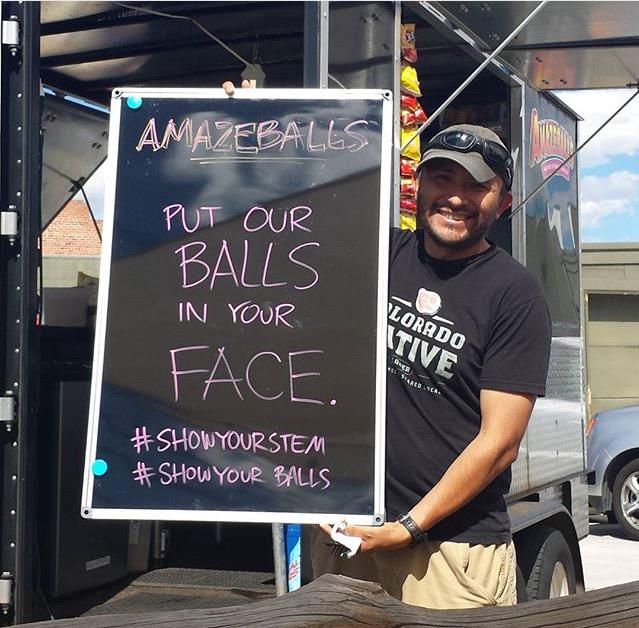 AMAZEBALLS
PUT OUR
BALLS
IN YOUR
FACE.
#SHOWYOURSTEM
#SHOWYOUR BALLS
OLORADO
ATIVE
AMAZEBALLS